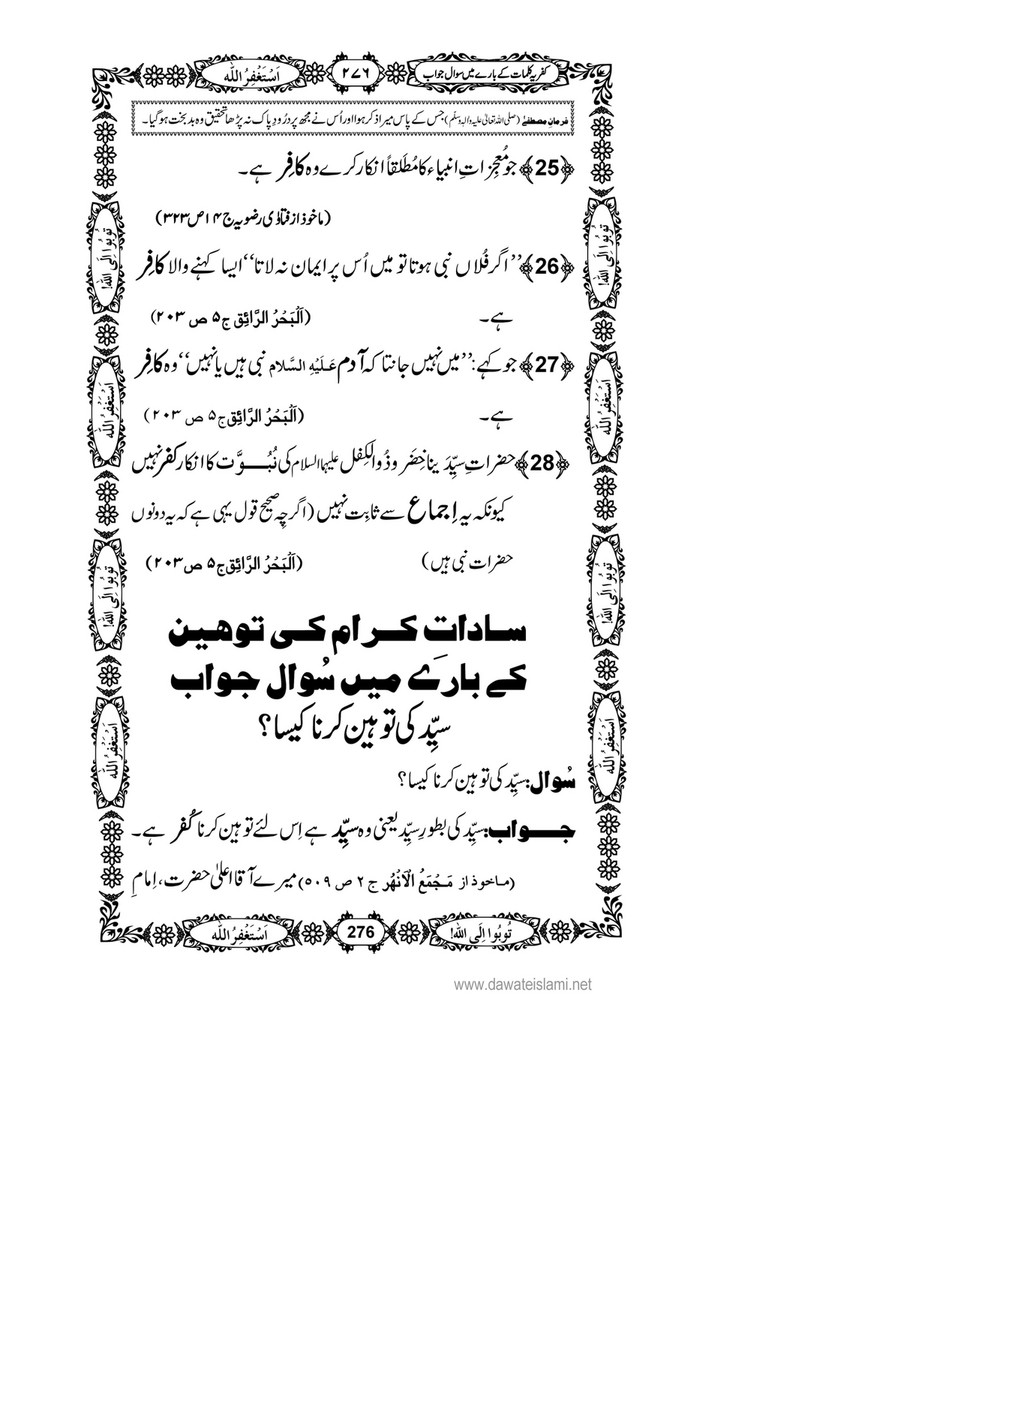 کفریہ کلمات کے بارے میں سوال جواب
٢٧٦
اَسْتَغْفِرُ اللّٰه
فرمانِ مصطفےٰ (صلی اللہ تعالیٰ علیہ والہ وسلم) جس کے پاس میرا ذکر ہوا اور اُس نے مجھ پر دُرُودِ پاک نہ پڑھا تحقیق وہ بد بخت ہو گیا۔
﴿25﴾ جو مُعجِزاتِ انبیاء کا مُطلَقاً انکار کرے وہ کافِر ہے۔
(ماخوذ از فتاوٰی رضویہ ج ۱۴ ص ۳۲۳)
﴿26﴾ ’’اگر فُلاں نبی ہوتا تو میں اُس پر ایمان نہ لاتا‘‘ ایسا کہنے والا کافِر
ہے۔ (اَلْبَحْرُ الرَّائِق ج ۵ ص ۲۰۳)
﴿27﴾ جو کہے: ’’میں نہیں جانتا کہ آدم عَلَیْہِ السَّلام نبی ہیں یا نہیں‘‘ وہ کافِر
ہے۔ (اَلْبَحْرُ الرَّائِق ج ۵ ص ۲۰۳)
﴿28﴾ حضراتِ سیِّدَینا خِضَر و ذُوالکِفل علیہما السلام کی نُبُوَّت کا انکار کفر نہیں
کیونکہ یہ اِجماع سے ثابِت نہیں (اگرچِہ صحیح قول یہی ہے کہ یہ دونوں
حضرات نبی ہیں) (اَلْبَحْرُ الرَّائِق ج ۵ ص ۲۰۳)
سادات کرام کی توہین
کے بارے میں سُوال جواب
سیِّد کی توہین کرنا کیسا؟
سُوال: سیِّد کی توہین کرنا کیسا؟
جواب: سیِّد کی بطورِ سیِّد یعنی وہ سیِّد ہے اِس لئے توہین کرنا کُفر ہے۔
(ماخوذ از مَجْمَعُ الْاَنْهُر ج ۲ ص ۵۰۹) میرے آقا اعلیٰ حضرت، اِمامِ
تُوبُوا اِلَى اللّٰه!
اَسْتَغْفِرُ اللّٰه
تُوبُوا اِلَى اللّٰه!
اَسْتَغْفِرُ اللّٰه
تُوبُوا اِلَى اللّٰه!
اَسْتَغْفِرُ اللّٰه
تُوبُوا اِلَى اللّٰه!
اَسْتَغْفِرُ اللّٰه
تُوبُوا اِلَى اللّٰه!
276
اَسْتَغْفِرُ اللّٰه
www.dawateislami.net